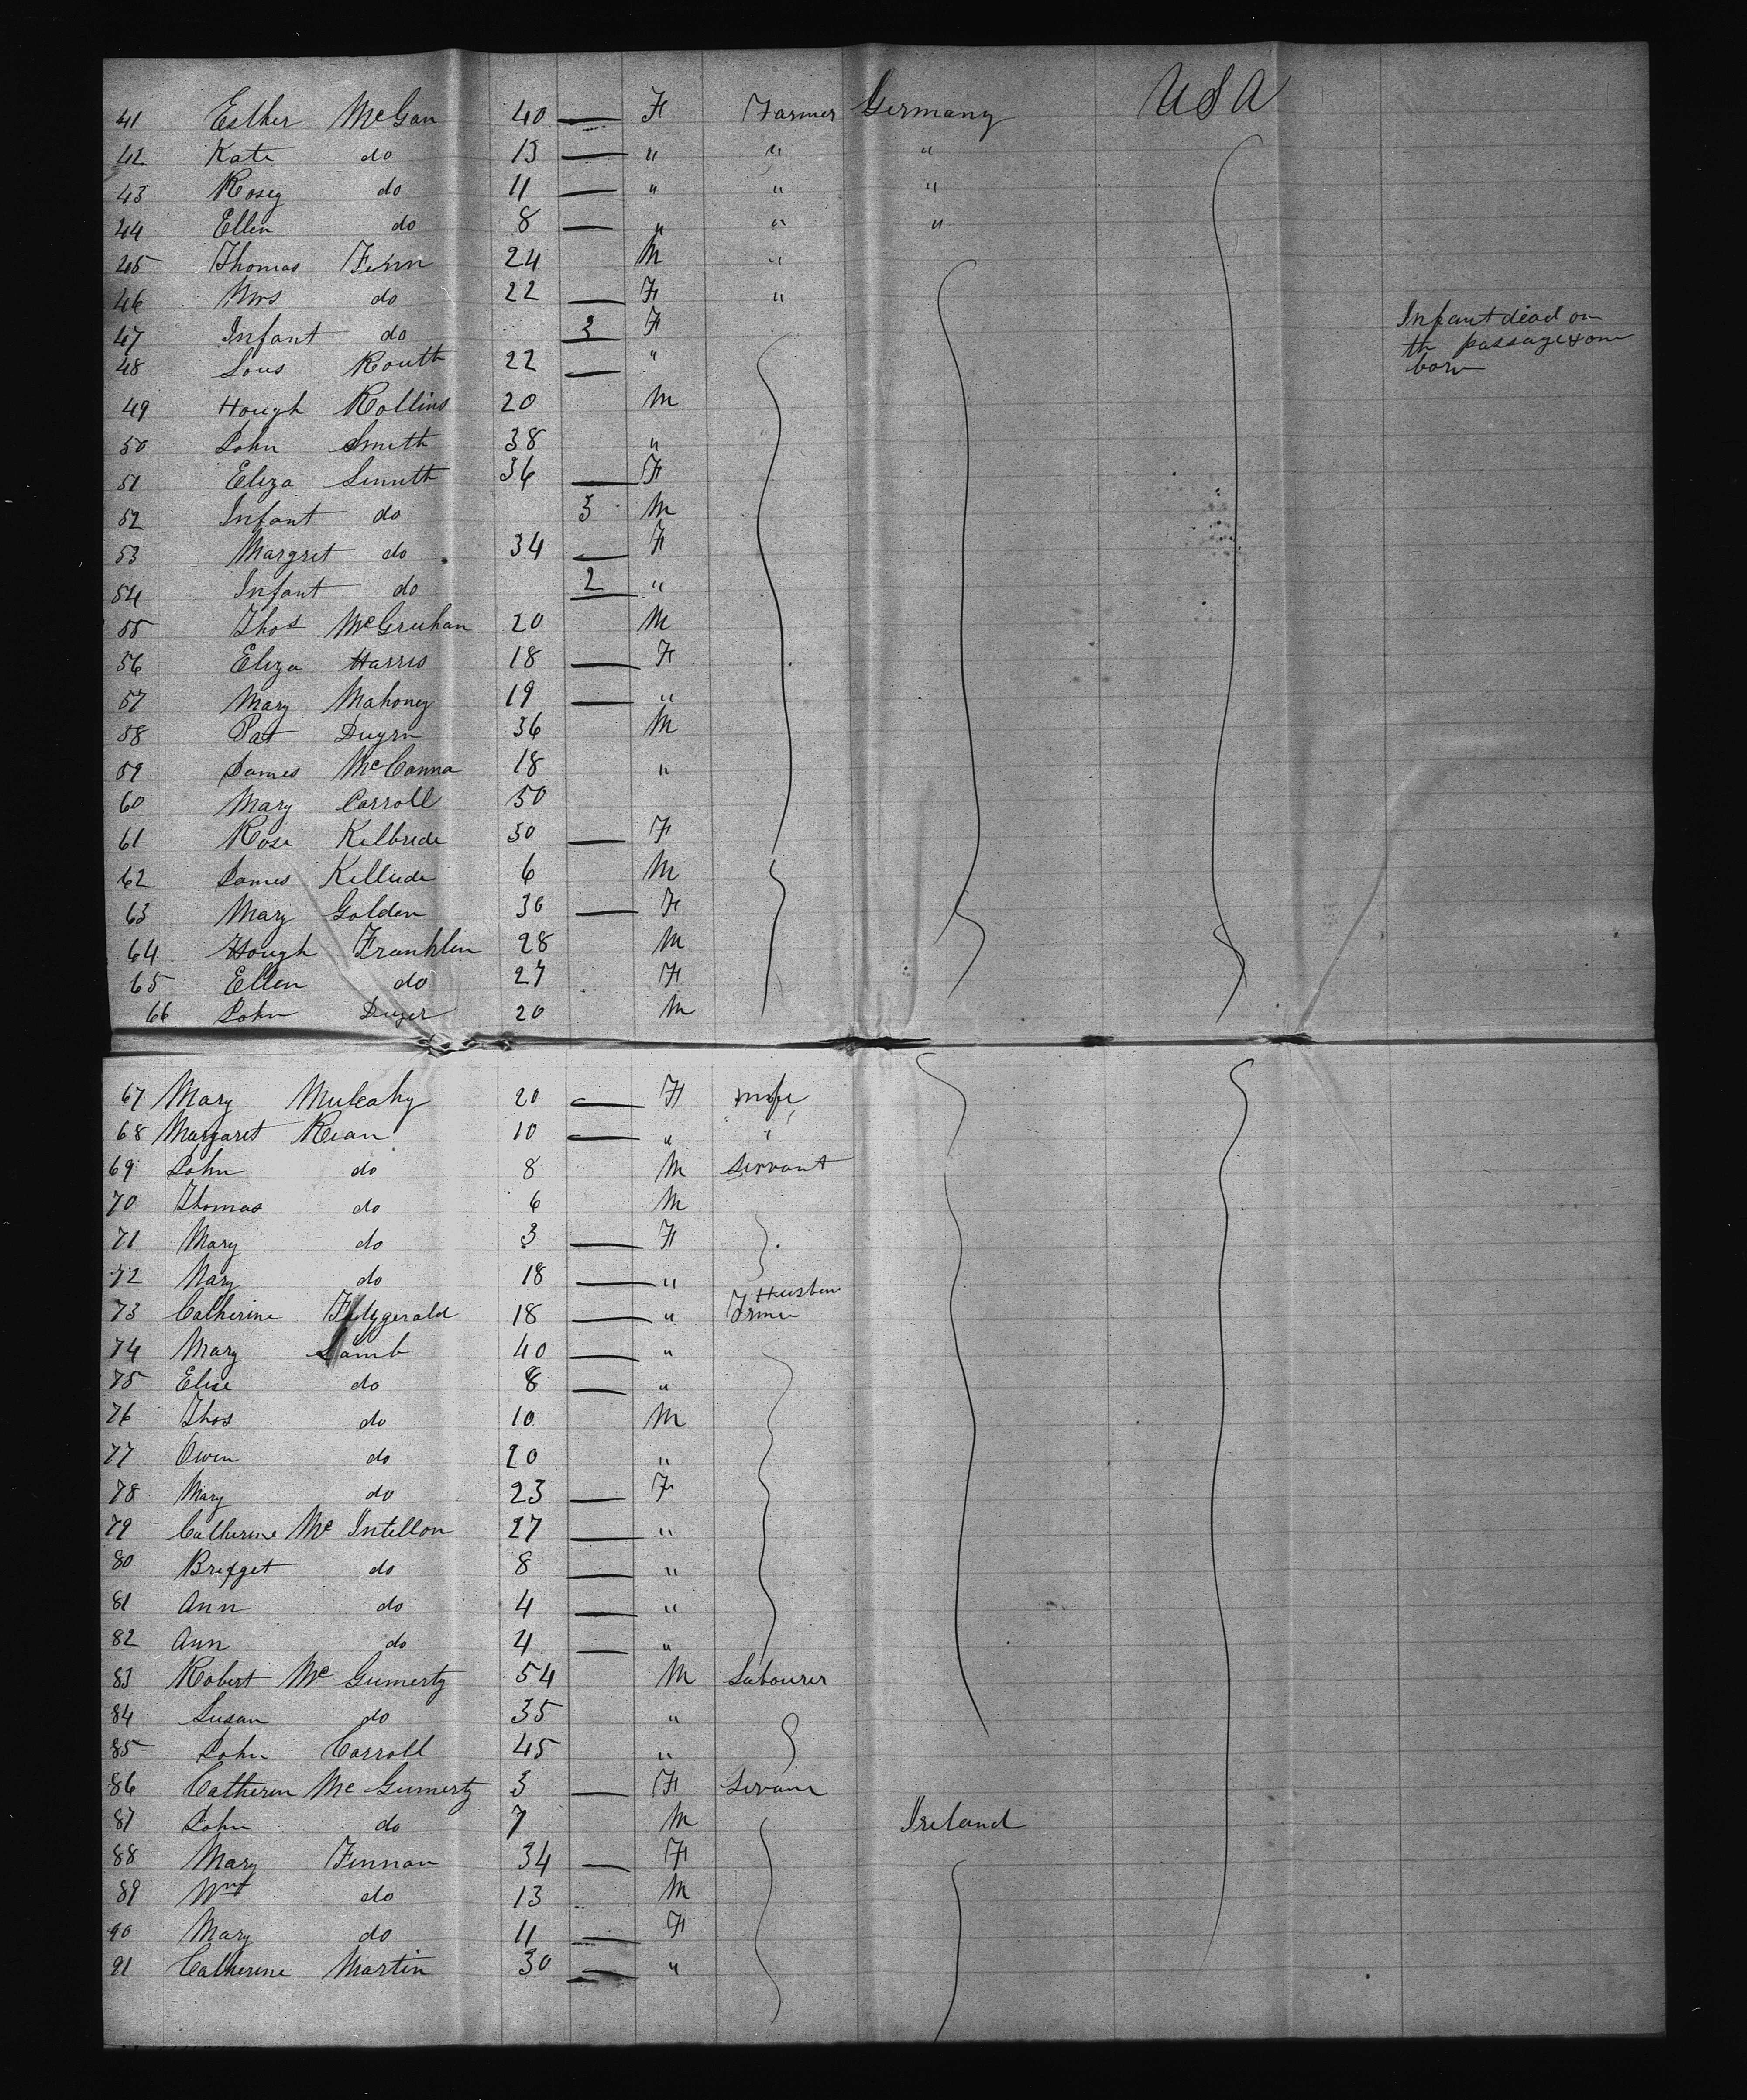 41 Esther McGan 40 — F Farmer Germany USA
42 Kate do 13 — " " "
43 Rosey do 11 — " " "
44 Ellen do 8 — " " "
45 Thomas Finn 24 M "
46 Mrs do 22 — F "
47 Infant do 3 F Infant died on
48 Lous Routh 22 — " the passage & one
born
49 Hough Rollins 20 M
50 John Smith 38 "
51 Eliza Smith 36 — F
52 Infant do 3 M
53 Margret do 34 — F
54 Infant do 2 "
55 Thos McGruhan 20 M
56 Eliza Harris 18 — F
57 Mary Mahoney 19 — "
58 Pat 36 M
59 James McCanna 18 "
60 Mary Carroll 50
61 Rose Kilbride 30 — F
62 James 6 M
63 Mary Golden 30 — F
64 Hough Franklin 28 M
65 Ellen do 27 F
66 John Dwyer 20 M
67 Mary Mulcahy 20 — F wife
68 Margaret Rean 10 — " "
69 John do 8 M Servant
70 Thomas do 6 M
71 Mary do 3 — F
72 Mary do 18 — "
73 Catherine Fitzgerald 18 — "
74 Mary Lamb 40 — "
75 Elise do 8 — "
76 Thos do 10 M
77 Owen do 20 "
78 Mary do 23 — F
79 Catherine Mc Intellon 27 — "
80 Bridget do 8 — "
81 Ann do 4 — "
82 Ann do 4 — "
83 Robert Mc Gumerty 54 M Labourer
84 Susan do 35 "
85 John Carroll 45 "
86 Catherin Mc Gumerty 3 — F
87 John do 7 M Ireland
88 Mary Finnan 34 — F
89 Wm do 13 M
90 Mary do 11 — F
91 Catherine Martin 30 — "